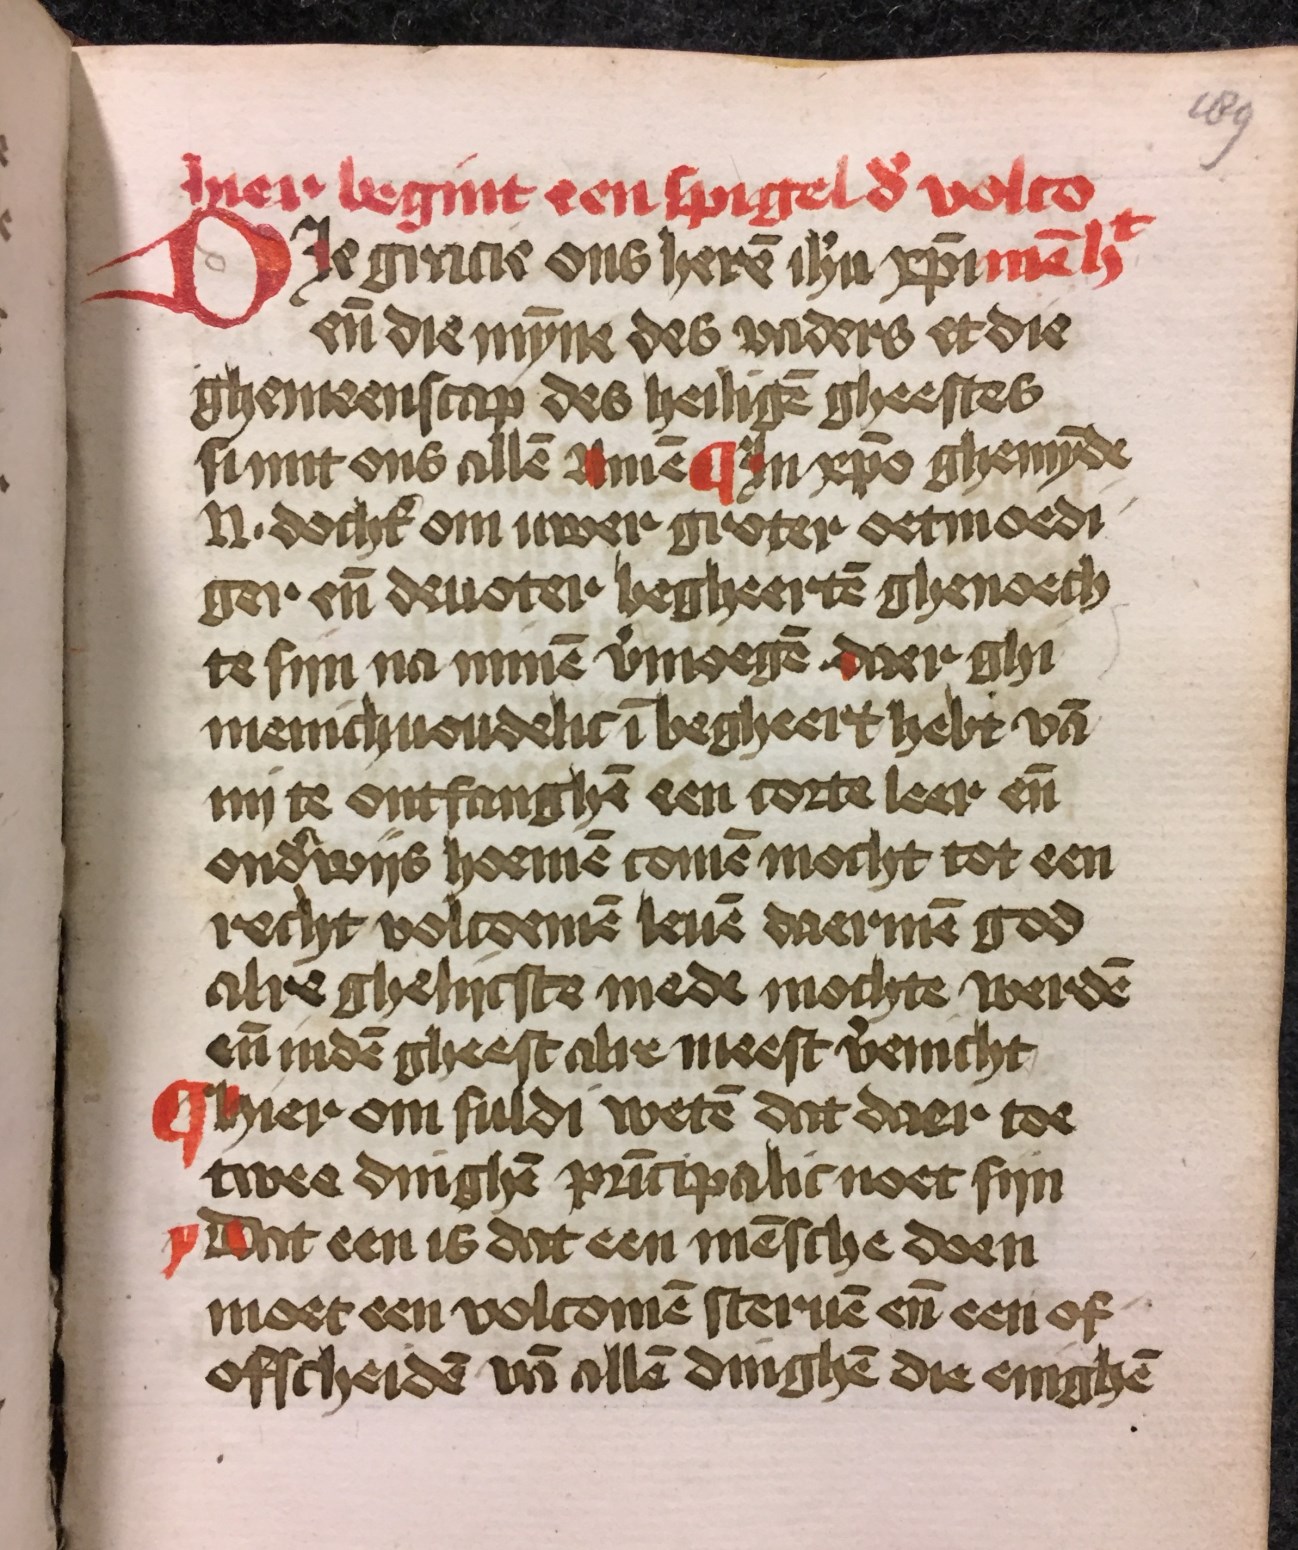 189
hier begint een spigel d̉ volco
DIe gracie ons herē ih̉u xp̄i mēh^t
en̄ die mȳne des vaders et die
ghemeenscap des heiligē gheestes
si mit ons allē Amē ¶ In xp̄o ghemȳde
N. docht̉ om uwer groter oetmoedi
ger en̄ deuoter begheertē ghenoech
te sijn na minē v̉moegē daer ghi
menichuoudelic ī begheert hebt vā
mi te ontfanghē een corte leer en̄
ond̉wijs hoemē comē mocht tot een
recht volcoemē leuē daermē god
alre ghelijcste mede mochte werdē
en̄ indē gheest alre meest v̉enicht
¶ hier om suldi wetē dat daer toe
twee dinghē prīcipalic noet sijn
Dat een is dat een mēsche doen
moet een volcomē steruē en̄ een of
ofscheidē vā allē dinghē die enighē